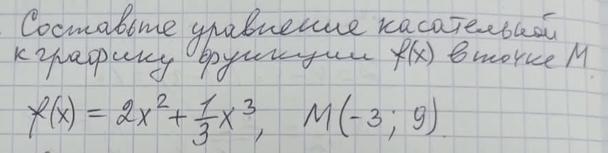 Составьте уравнение касательной
к графику функции f(x) в точке M.
f(x) = 2x² + 1/3 x³, M(-3; 9)